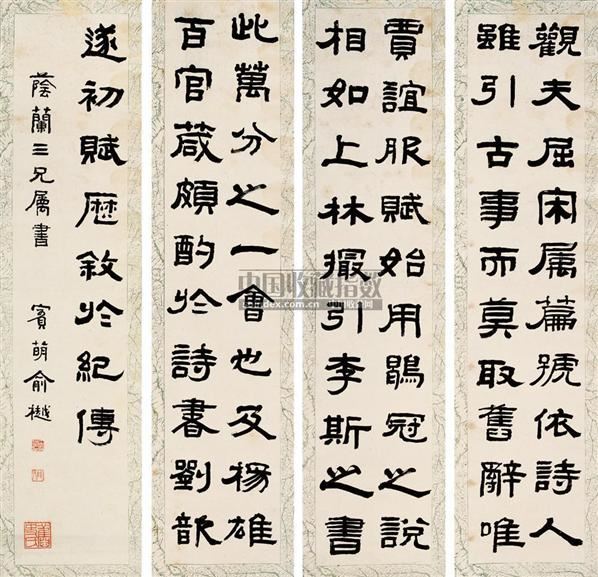 觀夫屈宋属篇號依詩人
雖引古事而莫取舊辭唯
賈誼服賦始用鶡冠之說
相如上林撮引李斯之書
此萬分之一會也及楊雄
百官葴頗酌扵詩書劉歆
遂初賦歷敘扵紀傳
蔭蘭三兄属書 賓萌俞樾
中国收藏指数